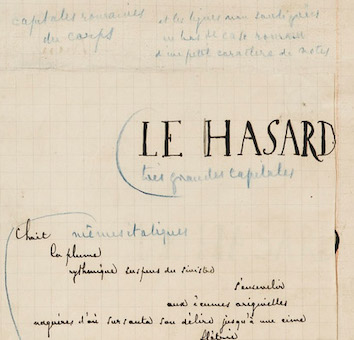 capitales romaines
du corps
et les lignes non soulignées
en bas de casse romain
d'un petit caractère de notes
LE HASARD
très grandes capitales
Choit
mêmes italiques
la plume
rythmique suspens du sinistre
s'ensevelir
aux écumes originelles
naguères d'où sursauta son délire jusqu'à une cime
flétrie